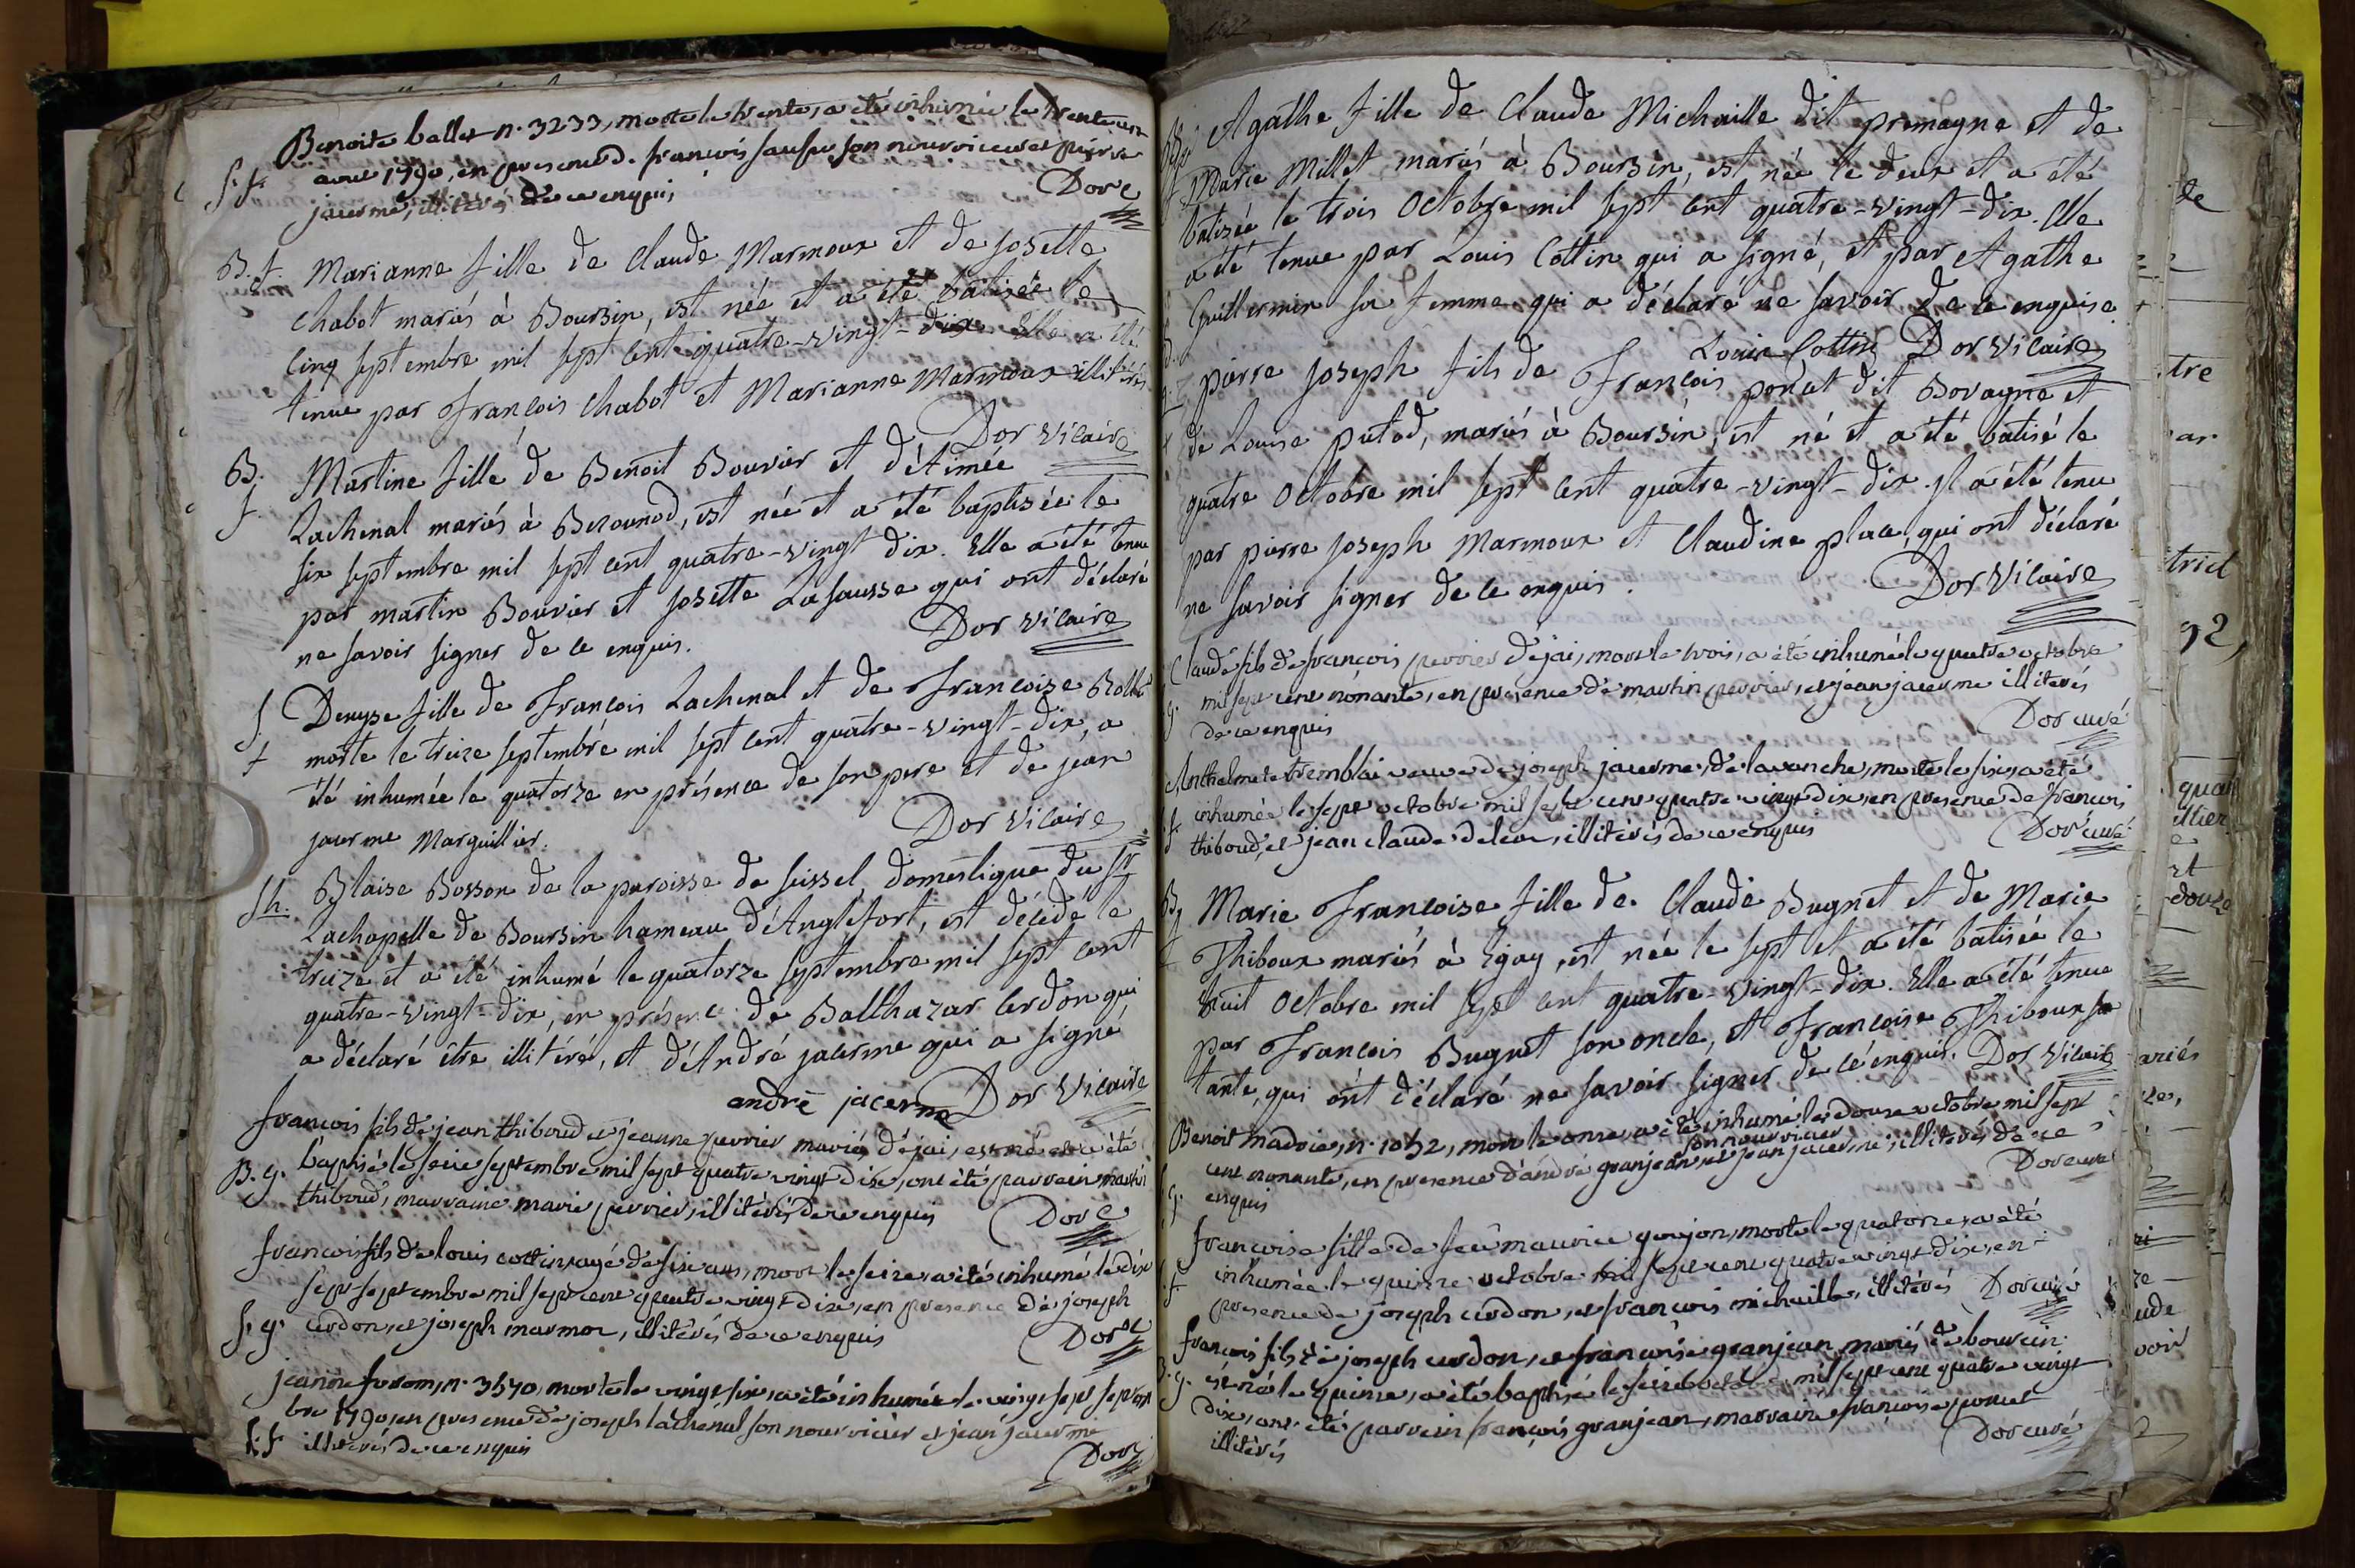 Benoite ballet n. 3233, morte le trente, a été inhumée le trente un
aout 1790, en presence d. francois sausse son nouricier et pierre
S. f. jacerme, illiterés de ce enquis Dor c
B. f. Marianne fille de Claude Marmoux et de Josette
Chabot mariés à Boursin, est née et a été batisée le
cinq septembre mil sept cent quatre-vingt-dix. Elle a été
tenue par François Chabot et Marianne Marmoux illitérés
Dor vicaire
B. f. Martine fille de Benoit Bouvier et d'Etimée
Lachenal mariés à Bezonnod, est née et a été baptisée le
six septembre mil sept cent quatre-vingt dix. Elle a été tenue
par martin Bouvier et Josette Lasausse qui ont déclaré
ne savoir signer de ce enquis. Dor vicaire
S. f. Denyse fille de François Lachenal et de Françoise Rollet
morte le treize septembre mil sept cent quatre-vingt-dix, a
été inhumée le quatorze en présence de son pere et de jean
jacerme Marguillier. Dor vicaire
Sh. Blaise Bosson de la paroisse de seissel, domestique du Sr
Lachapelle de Boursin hameau d'Anglefort, est décédé le
treize et a été inhumé le quatorze septembre mil sept cent
quatre-vingt-dix, en présence de Balthazar Cerdon qui
a déclaré être illitéré, et d'André jacerme qui a signé,
andré jacerme Dor vicaire
francois fils de jean thiboud et jeanne perrier mariés d'éjai, est né et a été
B. g. baptisé le seize septembre mil sept quatre vingt dix, ont été parrain martin
thiboud, marraine marie perrier, illitérés de ce enquis Dor c
francois fils de louis cottin agé de six ans, mort le seize, a été inhumé le dix
sept septembre mil sept cent quatre vingt dix, en presence de joseph
S. g. cerdon, et joseph marmou, illitérés de ce enquis Dor c
jeanne from, n. 3570, morte le vingt six, a été inhumée le vingt sept septem
bre 1790, en presence de joseph lachenal son nourricier et jean jacerme
S. f. illiterés de ce enquis Dor c
Bp. f Agathe fille de Claude Michaille dit premagne et de
Marie Millet mariés à Boursin, est née le deux et a été
batisée le trois Octobre mil sept cent quatre-vingt-dix. Elle
a été tenue par Louis Cottin qui a signé, et par Agathe
Guillermin sa femme qui a déclaré ne savoir de ce enquise
Louis Cottin Dor vicaire
pierre joseph fils de François poncet dit Bovagne et
de Louise putod, mariés à Boursin, est né et a été batisé le
quatre Octobre mil sept cent quatre-vingt-dix. Il a été tenu
par pierre joseph Marmoux et Claudine place, qui ont déclaré
ne savoir signer de ce enquis. Dor vicaire
Claude fils de francois perrier d'éjai, mort le trois, a été inhumé le quatre octobre
g. mil sept cent nonante, en presence de martin perrier, et jean jacerme illiterés
de ce enquis Dor curé
Anthelmete tremblai veuve de joseph jacerme, de lavanche, morte le six, a été
f. inhumée le sept octobre mil sept cent quatre vingt dix, en presence de francois
thiboud, et jean claude deleur, illitérés de ce enquis Dor curé
B f Marie Françoise fille de Claude Bugnet et de Marie
Thiboux mariés à Egay, est née le sept et a été batisée le
huit Octobre mil sept cent quatre-vingt-dix. Elle a été tenue
par François Bugnet son oncle, et Françoise Thiboux sa
tante, qui ont déclaré ne savoir signer de ce enquis. Dor vicaire
Benoit madoie, n. 1052, mort le onze, a été inhumé le douze octobre mil sept
son nourricier
cent nonante, en presence d'andré granjean, et jean jacerme, illiterés de ce
g. enquis Dor curé
francoise fille de feu maurice goujon, morte le quatorze, a été
f. inhumée le quinze octobre mil sept cent quatre vingt dix, en
presence de joseph cerdon, et françois michaille, illitérés Dor curé
françois fils de joseph cerdon, et françoise granjean mariés de boursin
B. g. est né le quinze, a été baptisé le seize octobre mil sept cent quatre vingt
dix, ont été parrein françois granjean, marraine françoise poncet
illitérés Dor curé
de
tre
ar
trict
92,
quat
ttier
et
douze
ariés
re,
ude
voir